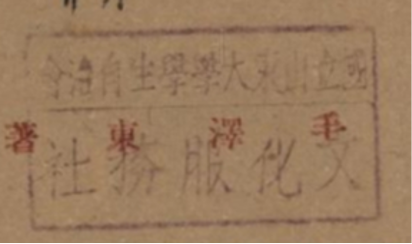 國立山東大學學生自治會
毛澤東著
文化服務社